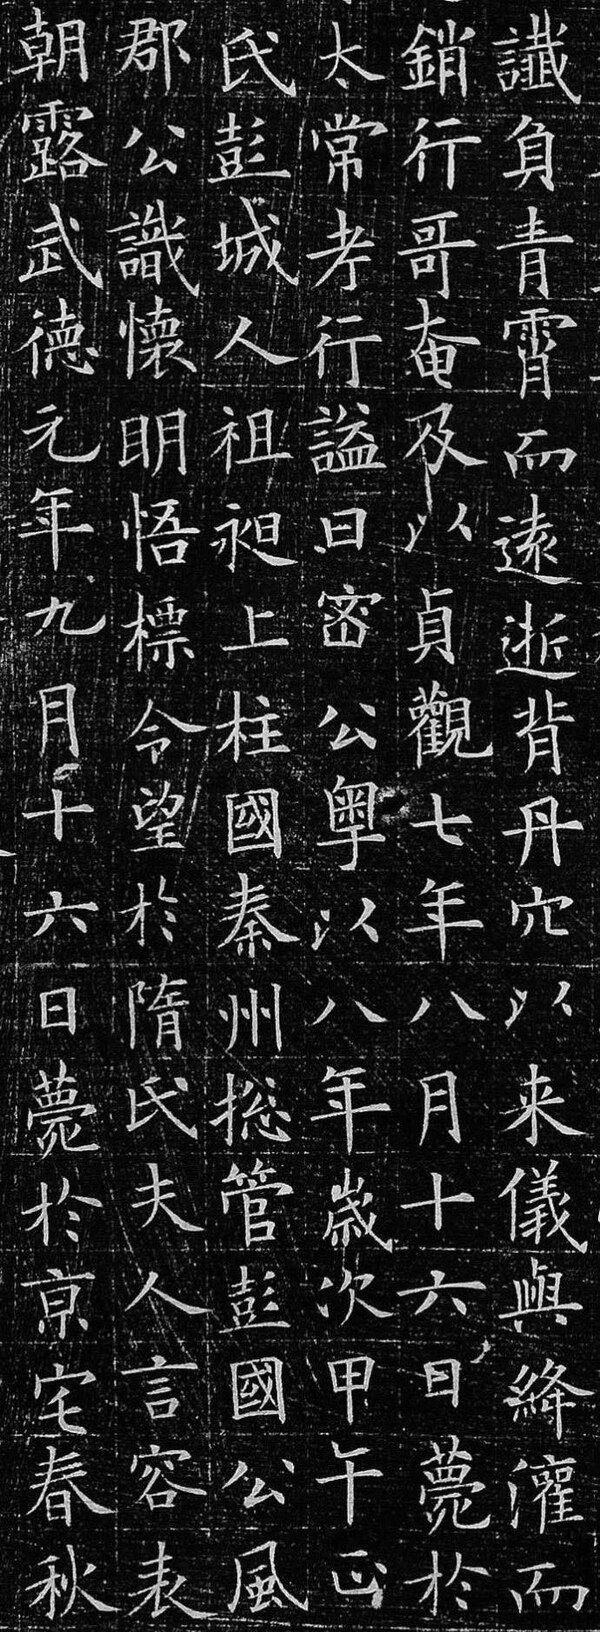 讖負青霄而遠逝背丹穴以来儀與絳灌而
銷行哥奄及以貞觀七年八月十六日薨於
太常考行謚曰密公粤以八年嵗次甲午正
氏彭城人祖昶上柱國秦州捴管彭國公風
郡公識懷明悟標令望於隋氏夫人言容表
朝露武德元年九月十六日薨於京宅春秋